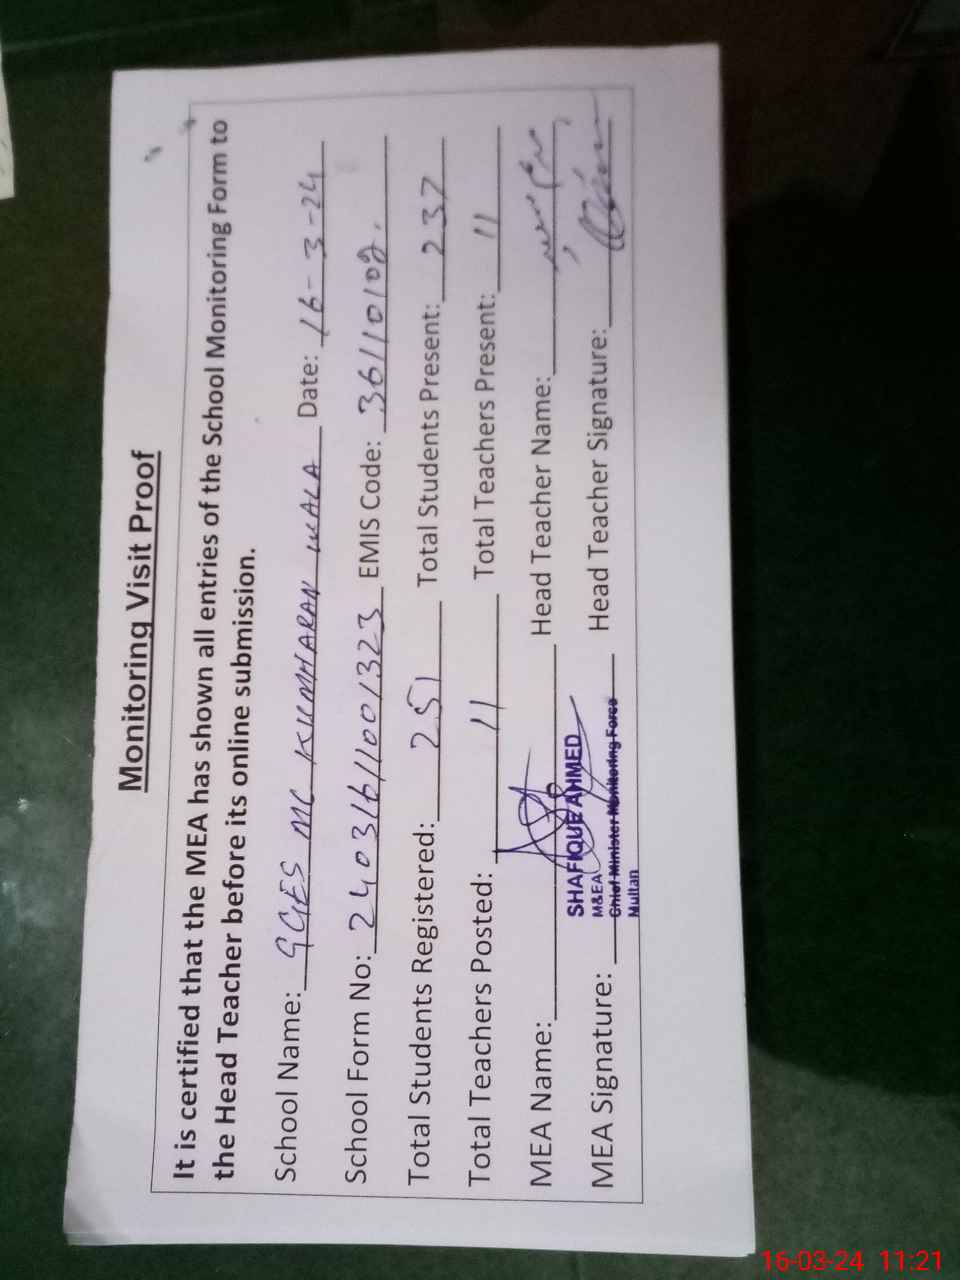 Monitoring Visit Proof
It is certified that the MEA has shown all entries of the School Monitoring Form to
the Head Teacher before its online submission.
School Name: GGES MC KHUMHARAN WALA Date: 16-3-24
School Form No: 24031611001323 EMIS Code: 36110102.
Total Students Registered: 251 Total Students Present: 237
Total Teachers Posted: 11 Total Teachers Present: 11
MEA Name: Head Teacher Name:
SHAFIQUE AHMED
M&EA
Chief Minister Monitoring Force
Multan
MEA Signature: Head Teacher Signature:
16-03-24 11:21